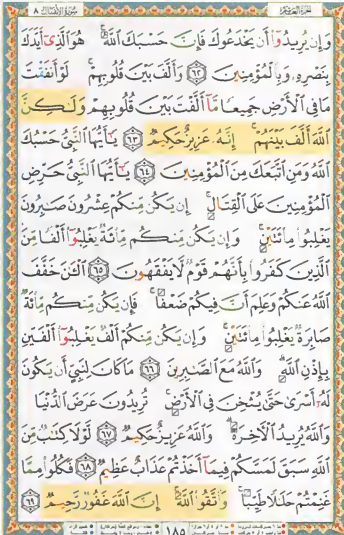 سُورَةُ الأَنفَالِ ٨
وَإِن يُرِيدُوٓا۟ أَن يَخْدَعُوكَ فَإِنَّ حَسْبَكَ ٱللَّهُ ۚ هُوَ ٱلَّذِىٓ أَيَّدَكَ
بِنَصْرِهِۦ وَبِٱلْمُؤْمِنِينَ ٦٢ وَأَلَّفَ بَيْنَ قُلُوبِهِمْ ۚ لَوْ أَنفَقْتَ
مَا فِى ٱلْأَرْضِ جَمِيعًا مَّآ أَلَّفْتَ بَيْنَ قُلُوبِهِمْ وَلَـٰكِنَّ
ٱللَّهَ أَلَّفَ بَيْنَهُمْ ۚ إِنَّهُۥ عَزِيزٌ حَكِيمٌ ٦٣ يَـٰٓأَيُّهَا ٱلنَّبِىُّ حَسْبُكَ
ٱللَّهُ وَمَنِ ٱتَّبَعَكَ مِنَ ٱلْمُؤْمِنِينَ ٦٤ يَـٰٓأَيُّهَا ٱلنَّبِىُّ حَرِّضِ
ٱلْمُؤْمِنِينَ عَلَى ٱلْقِتَالِ ۚ إِن يَكُن مِّنكُمْ عِشْرُونَ صَـٰبِرُونَ
يَغْلِبُوا۟ مِا۟ئَتَيْنِ ۚ وَإِن يَكُن مِّنكُم مِّا۟ئَةٌ يَغْلِبُوٓا۟ أَلْفًا مِّنَ
ٱلَّذِينَ كَفَرُوا۟ بِأَنَّهُمْ قَوْمٌ لَّا يَفْقَهُونَ ٦٥ ٱلْـَٔـٰنَ خَفَّفَ
ٱللَّهُ عَنكُمْ وَعَلِمَ أَنَّ فِيكُمْ ضَعْفًا ۚ فَإِن يَكُن مِّنكُم مِّا۟ئَةٌ
صَابِرَةٌ يَغْلِبُوا۟ مِا۟ئَتَيْنِ ۚ وَإِن يَكُن مِّنكُمْ أَلْفٌ يَغْلِبُوٓا۟ أَلْفَيْنِ
بِإِذْنِ ٱللَّهِ ۗ وَٱللَّهُ مَعَ ٱلصَّـٰبِرِينَ ٦٦ مَا كَانَ لِنَبِىٍّ أَن يَكُونَ
لَهُۥٓ أَسْرَىٰ حَتَّىٰ يُثْخِنَ فِى ٱلْأَرْضِ ۚ تُرِيدُونَ عَرَضَ ٱلدُّنْيَا
وَٱللَّهُ يُرِيدُ ٱلْـَٔاخِرَةَ ۗ وَٱللَّهُ عَزِيزٌ حَكِيمٌ ٦٧ لَّوْلَا كِتَـٰبٌ مِّنَ
ٱللَّهِ سَبَقَ لَمَسَّكُمْ فِيمَآ أَخَذْتُمْ عَذَابٌ عَظِيمٌ ٦٨ فَكُلُوا۟ مِمَّا
غَنِمْتُمْ حَلَـٰلًا طَيِّبًا ۚ وَٱتَّقُوا۟ ٱللَّهَ ۚ إِنَّ ٱللَّهَ غَفُورٌ رَّحِيمٌ ٦٩
١٨٥